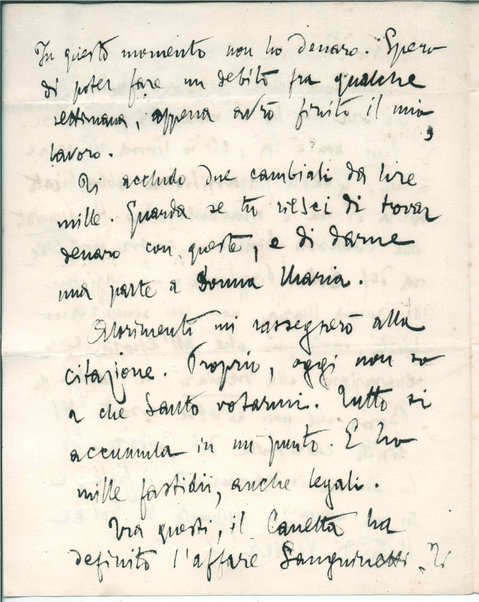 In questo momento non ho denaro. Spero
di poter fare un debito fra qualche
settimana, appena avrò finito il mio
lavoro.
Ti accludo due cambiali da lire
mille. Guarda se tu riesci di trovar
denaro con queste, e di darne
una parte a Donna Maria.
Altrimenti mi rassegnerò alla
citazione. Proprio, oggi non so
a che Santo votarmi. Tutto si
accumula in un punto. E ho
mille fastidii, anche legali.
Tra questi, il Canetta ha
definito l'affare Sanguinetti. Ti